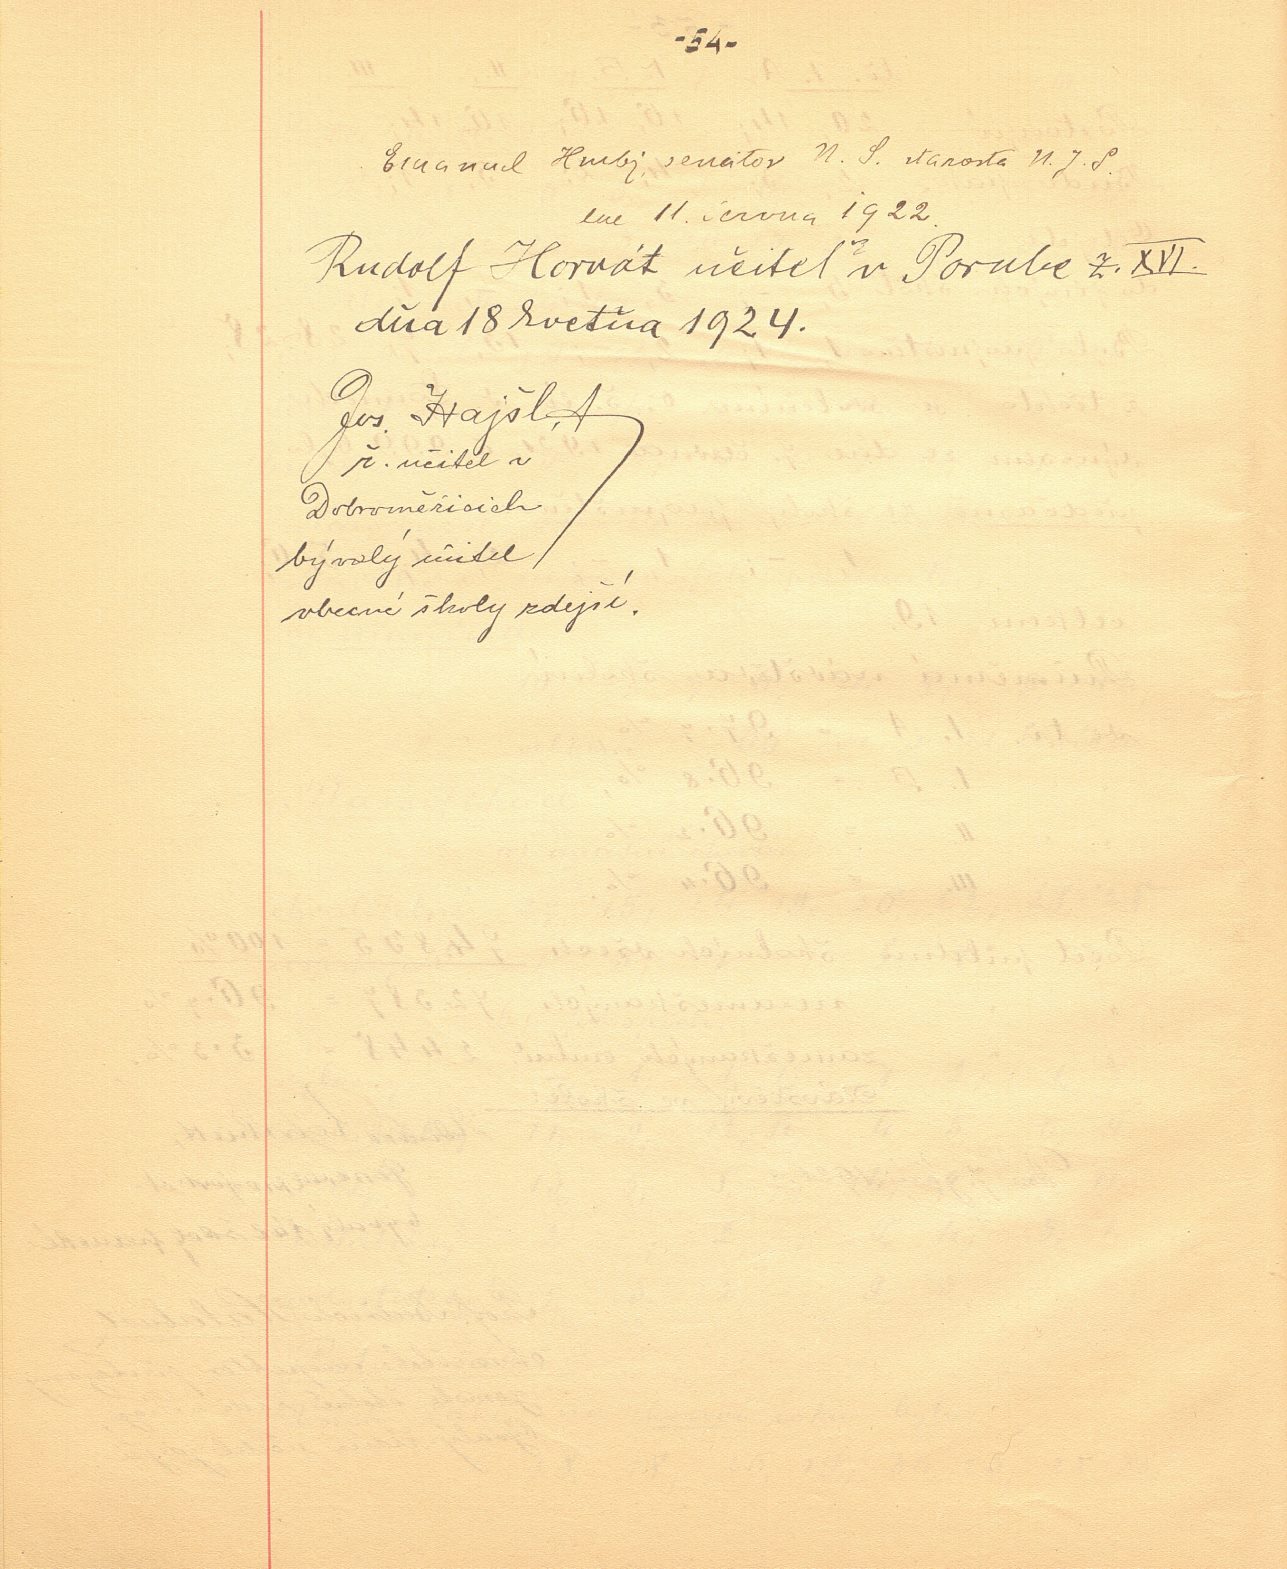 -54-
Emanuel Hrubý, senátor N. S. starosta N. J. S.
dne 11. června 1922.
Rudolf Horvát učitel v Porube ž. XVI.
dňa 18 květňa 1924.
Jos. Hajšl,
ř. učitel v
Dobroměřicích
bývalý učitel
obecné školy zdejší.